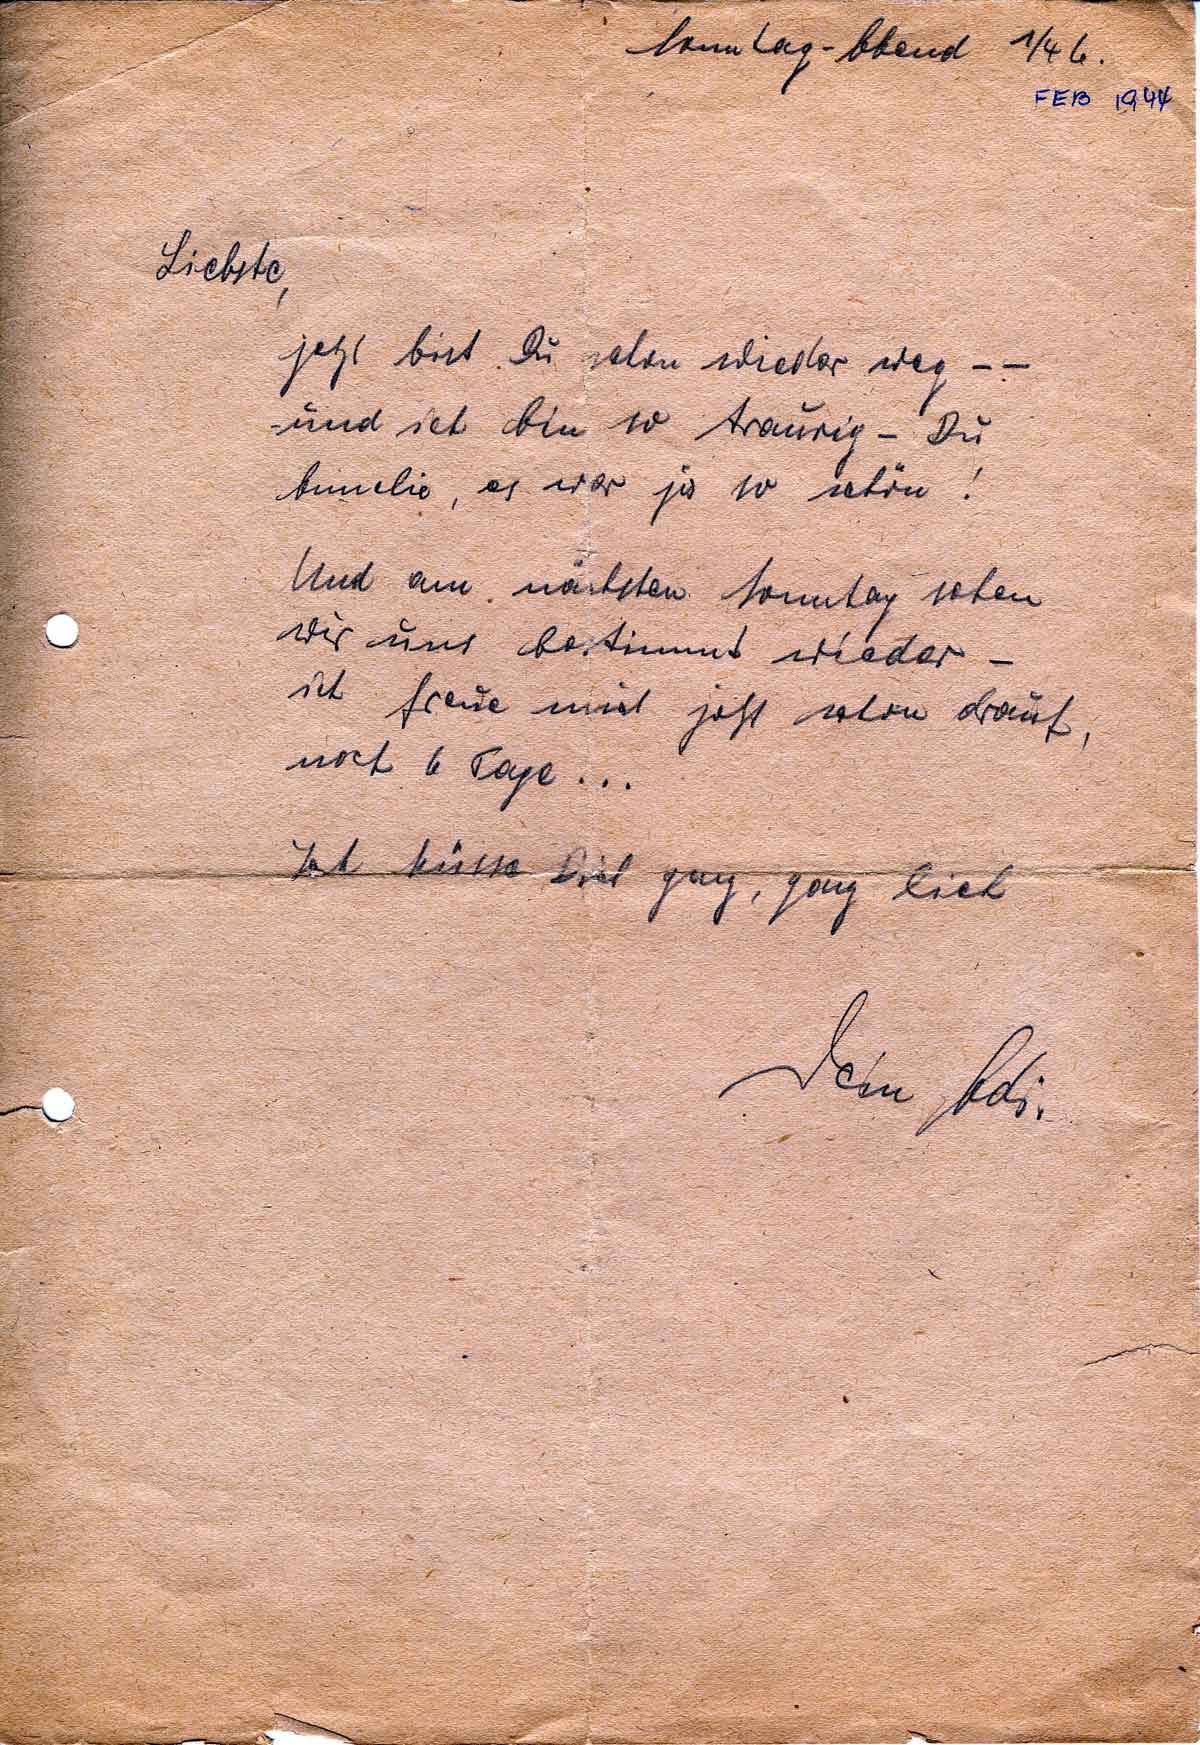 Sonntag-Abend 1/4 6.
FEB 1944
Liebste,
jetzt bist Du schon wieder weg --
und ich bin so traurig - Du
, es war ja so schön!
Und am nächsten Sonntag sehen
wir uns bestimmt wieder -
ich freue mich jetzt schon drauf,
noch 6 Tage...
Ich küsse Dich ganz, ganz lieb
Dein Adi.